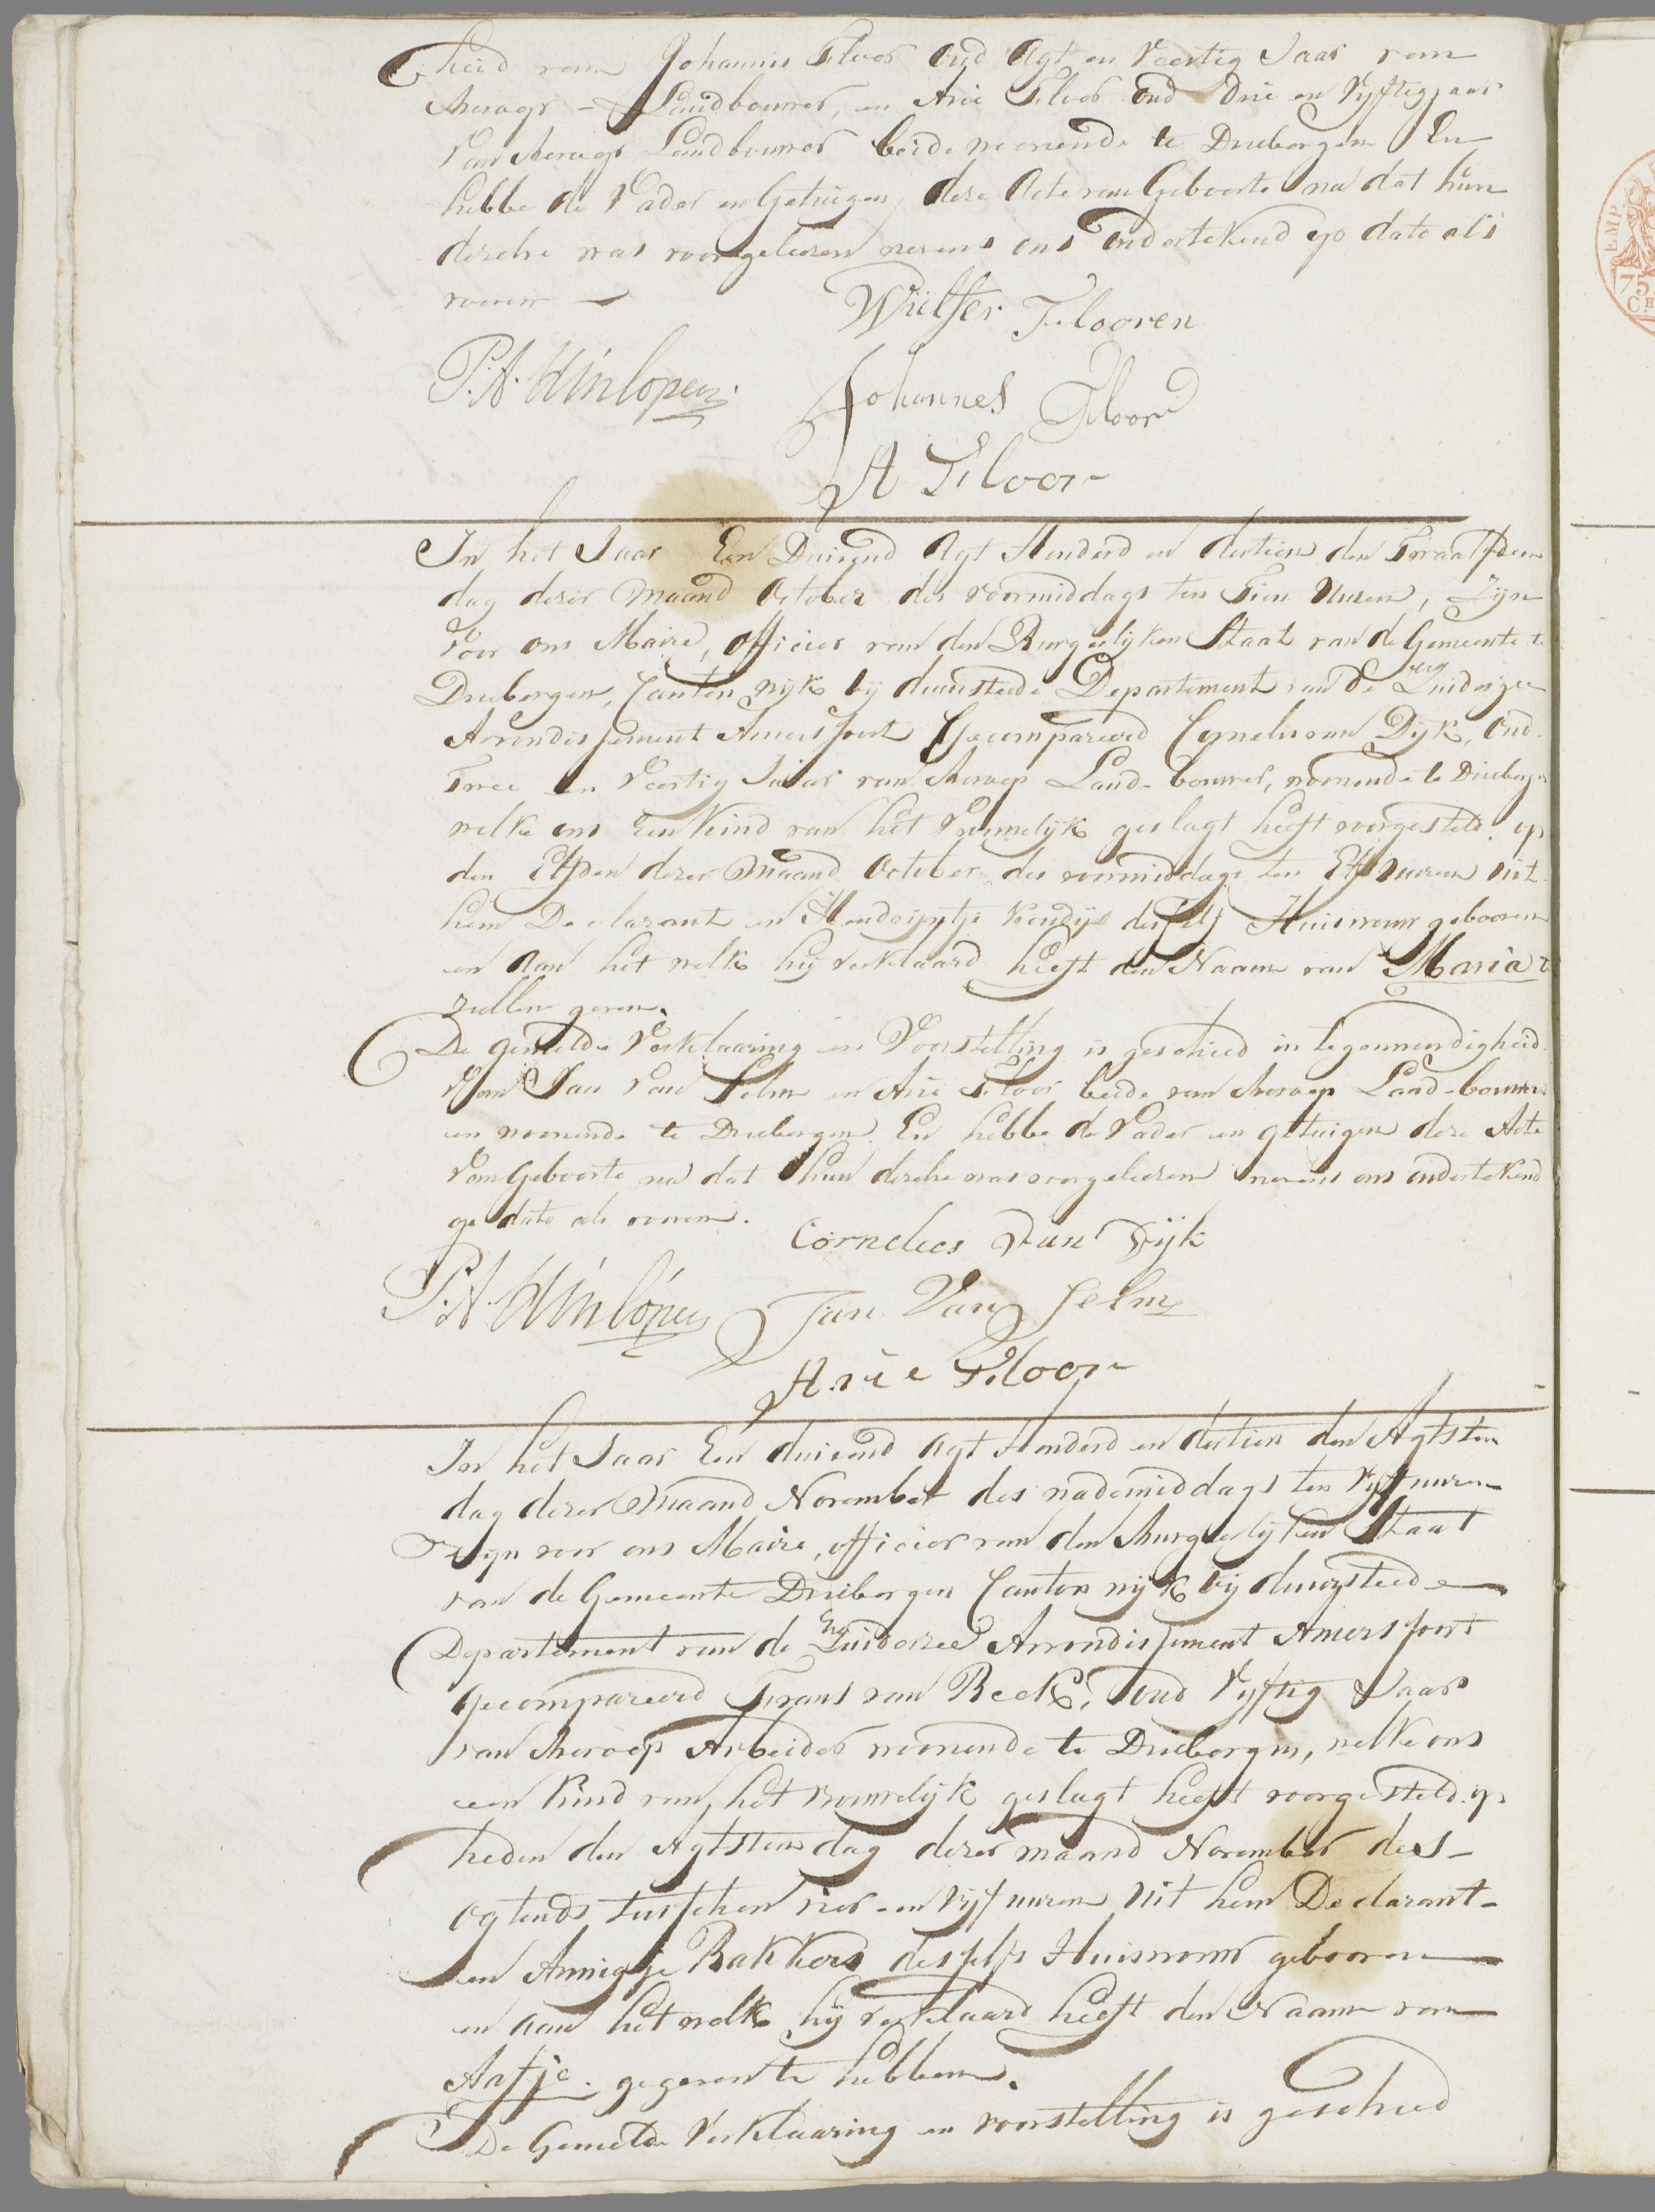 heid van Johannis Floor Oud Agt en Veertig Jaar van
beroep - Landbouwer, en Arie Floor Oud Drie en Vyftig jaar
Van beroep Landbouwer beide woonende te Driebergen En
hebbe de Vader en Getuigen, deze Acte van Geboorte na dat hun
dezelve was voorgeleezen nevens ons Ondertekend op dato als
voren
Wulfer Flooren
P.A. Hinlopen
Johannes Floor
A Floor
In het Jaar Een Duizend Agt Honderd en dertien den Twaalfden
dag dezer Maand October des voormiddags ten Tien Uuren, Zijn
Voor ons Maire, officier van den Burgerlijken Staat van de Gemeente te
Driebergen, Canton wijk bij duurstede Departement van de Zuiderzee
Arrondissement Amersfoort Gecompareerd Cornelis van Dijk, Oud
Twee en Veertig Jaar van beroep Land-bouwer, woonende te Driebergen
welke ons een Kind van het Vrouwelijk geslagt heeft voorgesteld. op
den Elfden dezer Maand October des voormiddags ten Elf Uuren uit
hem Declarant en Hendrijntje desselfs Huisvrouw gebooren
en aan het welk hij verklaard heeft den Naam van Maria te
zullen geven.
De gemelde Verklaaring en Voorstelling is geschied in tegenwoordigheid
Van Jan Van Selm en Arie Floor beide van beroep Land-bouwer
en woonende te Driebergen. En hebbe de Vader en getuigen deze Acte
Van Geboorte na dat hun dezelve was voorgeleezen nevens ons ondertekend
op dato als voren.
Cornelies Van Dijk
P.A. Hinlopen
Jan Van Selm
Arie Floor
In het Jaar Een duizend Agt Honderd en dertien den Agtsten
dag dezer Maand November des nademiddags ten Vyf uuren
Zijn voor ons Maire, officier van den Burgerlijken Staat
van de Gemeente Driebergen Canton wijk bij duurstede
Departement van de Zuiderzee Arrondissement Amersfoort
Gecompareerd Frans van Beek, Oud Vyftig Jaar
van beroep Arbeider woonende te Driebergen, welke ons
een Kind van het vrouwelijk geslagt heeft voorgesteld. op
heden den Agtsten dag dezer maand November des
ogtends tusschen vier en Vijf uuren uit hem Declarant
en Annigje Bakkers desselfs Huisvrouw gebooren
en aan het welk hij verklaard heeft den Naam van
Aafje. gegeven te hebben.
De Gemelde Verklaaring en voorstelling is geschied
EMP.
75
CE